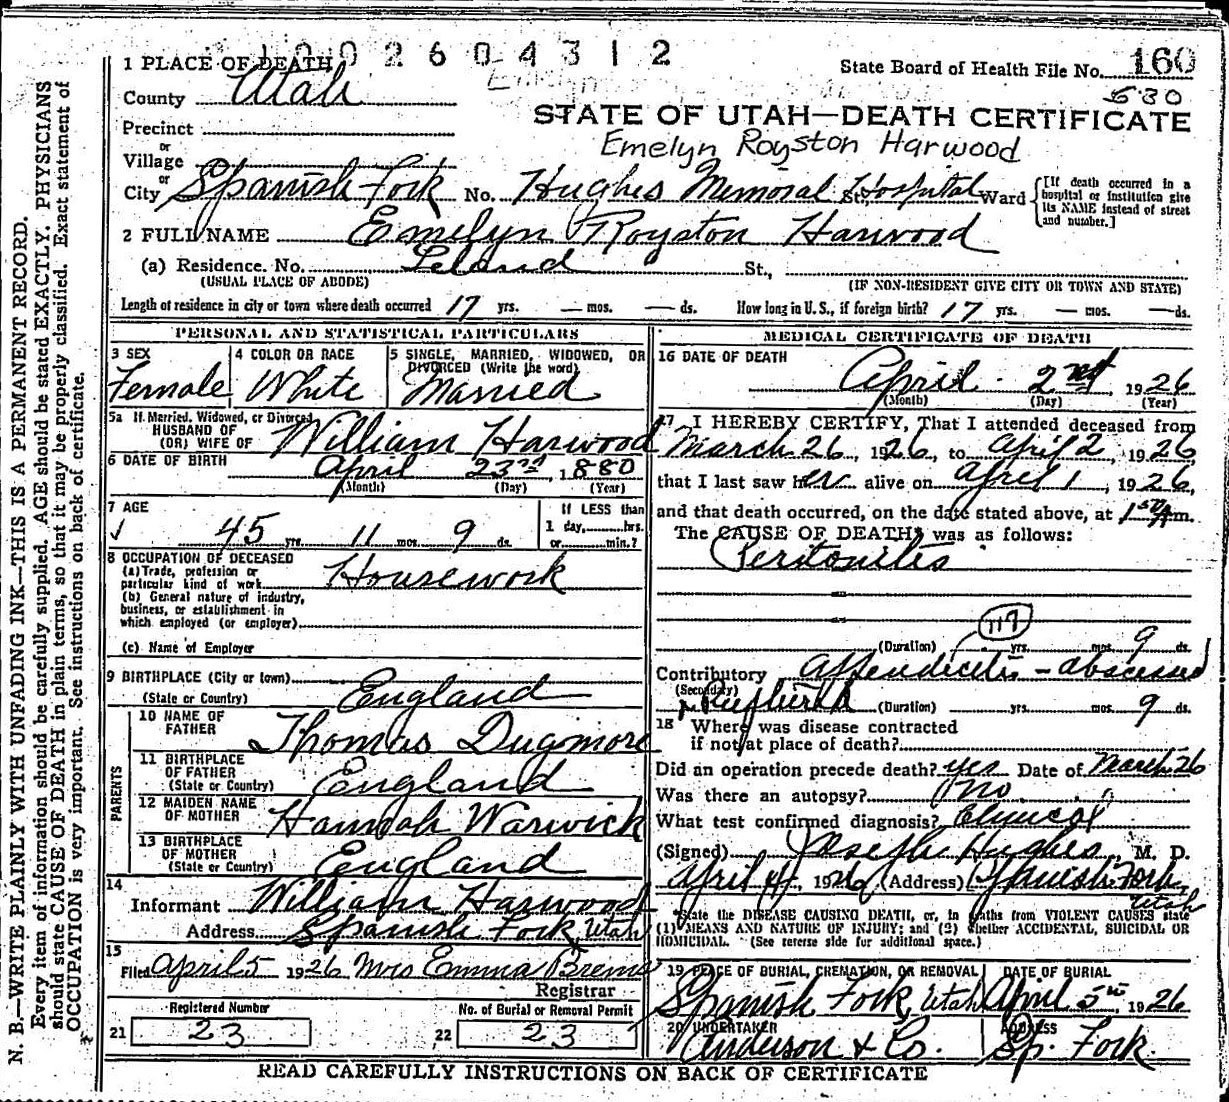 1002604312
1 PLACE OF DEATH
State Board of Health File No. 160
County Utah
530
STATE OF UTAH—DEATH CERTIFICATE
Precinct
Emelyn Royston Harwood
or
Village
or
City Spanish Fork No. Hughes Memorial Hospital St., Ward
[If death occurred in a hospital or institution give its NAME instead of street and number.]
2 FULL NAME Emelyn Royston Harwood
(a) Residence. No. Leland St.,
(USUAL PLACE OF ABODE) (IF NON-RESIDENT GIVE CITY OR TOWN AND STATE)
Length of residence in city or town where death occurred 17 yrs. — mos. — ds. How long in U.S., if foreign birth? 17 yrs. — mos. — ds.
PERSONAL AND STATISTICAL PARTICULARS
3 SEX Female
4 COLOR OR RACE White
5 SINGLE, MARRIED, WIDOWED, OR DIVORCED (Write the word) Married
5a If Married, Widowed, or Divorced
HUSBAND OF
(OR) WIFE OF William Harwood
6 DATE OF BIRTH April 23rd, 1880
(Month) (Day) (Year)
7 AGE
45 yrs. 11 mos. 9 ds.
If LESS than
1 day, hrs.
or min.?
8 OCCUPATION OF DECEASED
(a) Trade, profession or
particular kind of work Housework
(b) General nature of industry,
business, or establishment in
which employed (or employer)
(c) Name of Employer
9 BIRTHPLACE (City or town)
(State or Country) England
PARENTS
10 NAME OF
FATHER Thomas Dugmore
11 BIRTHPLACE
OF FATHER
(State or Country) England
12 MAIDEN NAME
OF MOTHER Hannah Warwick
13 BIRTHPLACE
OF MOTHER
(State or Country) England
14
Informant William Harwood
Address Spanish Fork, Utah
15
Filed April 5 1926 Mrs Emma Brems
Registrar
Registered Number
21 23
No. of Burial or Removal Permit
22 23
MEDICAL CERTIFICATE OF DEATH
16 DATE OF DEATH
April 2nd, 1926
(Month) (Day) (Year)
17 I HEREBY CERTIFY, That I attended deceased from
March 26, 1926, to April 2, 1926,
that I last saw her alive on April 1, 1926,
and that death occurred, on the date stated above, at m.
The CAUSE OF DEATH* was as follows:
Peritonitis
119
(Duration) yrs. mos. 9 ds.
Contributory Appendicitis - abscessed
(Secondary)
(Duration) yrs. mos. 9 ds.
18 Where was disease contracted
if not at place of death?
Did an operation precede death? yes Date of March 26
Was there an autopsy? no
What test confirmed diagnosis? Clinical
(Signed) Joseph Hughes, M. D.
April 4, 1926 (Address) Spanish Fork,
Utah
*State the DISEASE CAUSING DEATH, or, in deaths from VIOLENT CAUSES state
(1) MEANS AND NATURE OF INJURY; and (2) whether ACCIDENTAL, SUICIDAL OR
HOMICIDAL. (See reverse side for additional space.)
19 PLACE OF BURIAL, CREMATION, OR REMOVAL
Spanish Fork, Utah
DATE OF BURIAL
April 5th, 1926
20 UNDERTAKER
Anderson & Co.
ADDRESS
Sp. Fork
READ CAREFULLY INSTRUCTIONS ON BACK OF CERTIFICATE
N. B.—WRITE PLAINLY WITH UNFADING INK—THIS IS A PERMANENT RECORD.
Every item of information should be carefully supplied. AGE should be stated EXACTLY. PHYSICIANS
should state CAUSE OF DEATH in plain terms, so that it may be properly classified. Exact statement of
OCCUPATION is very important. See instructions on back of certificate.